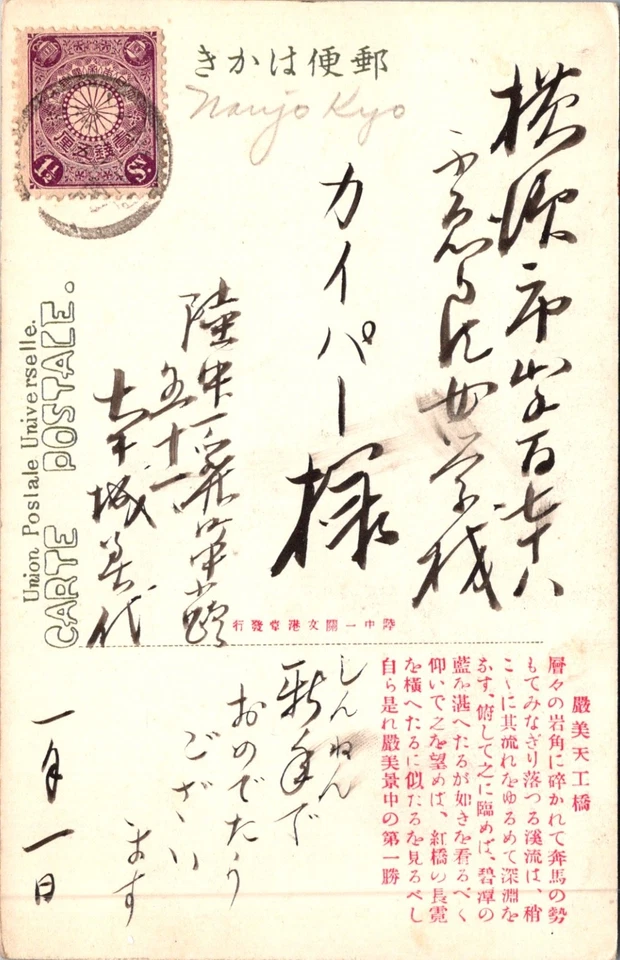 郵便はかき
Nanjo Kyo
1½
Sn.
Union Postale Universelle.
CARTE POSTALE.
横濱市山手百七十八
女学校
カイパー様
陸中一
五十一
城美代
陸中一関文港堂發行
しんねん
新年で
おめでたう
ござゝい
ます
一月一日
嚴美天工橋
層々の岩角に碎かれて奔馬の勢
もてみなぎり落つる溪流は、稍
こゝに其流れをゆるめて深淵を
なす、俯して之に臨めば、碧潭の
藍を湛へたるが如きを看るべく
仰いで之を望めば、紅橋の長霓
を横へたるに似たるを見るべし
自ら是れ嚴美景中の第一勝